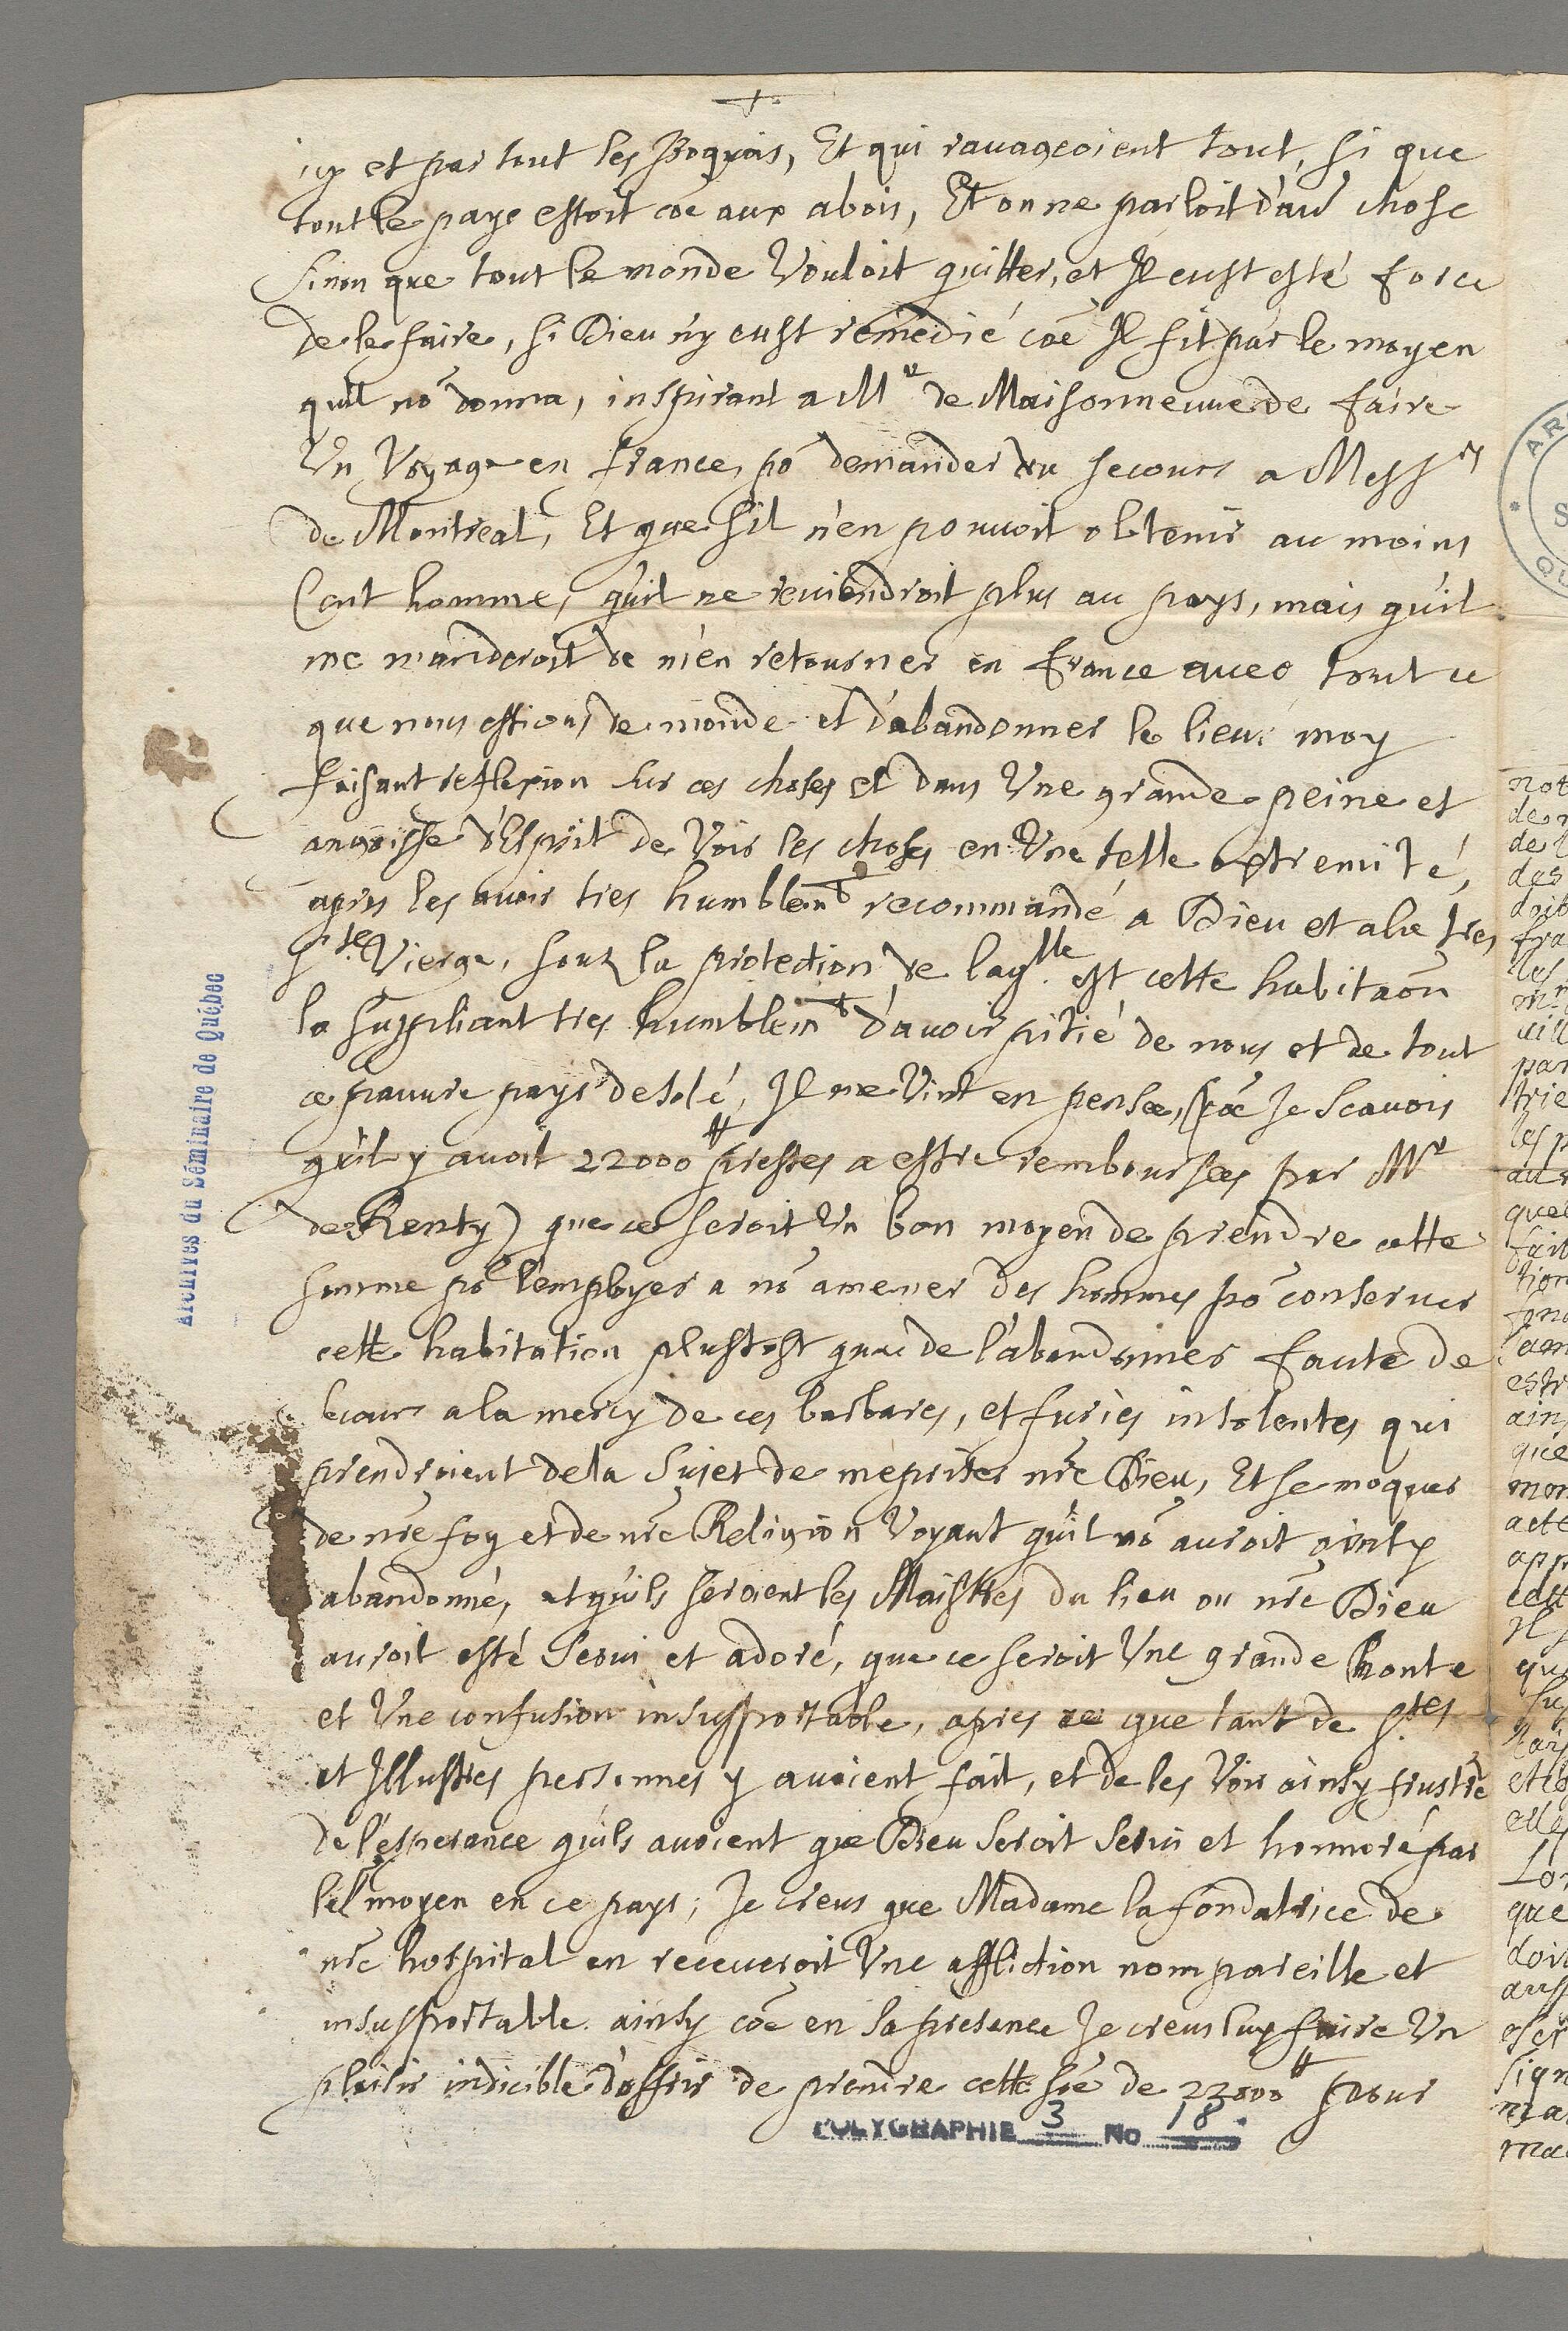 +
icy et par tout les Iroquois, Et qui rauageoient tout, si que
tout le pays estoit cõe aux abois, Et on ne parloit d'aũe chose
Sinon que tout le monde Vouloit quitter, et Il eust esté force
de le faire, si Dieu n'y eust remedié cõe Il fit par le moyen
qu'il nõ donna, inspirant a Mr de Maisonneuue de faire
Vn Voyage en france, põ demander du secours a Messrs
de Montreal, Et que s'il n'en pouuoit obtenir au moins
Cent homme, qu'il ne reuiendroit plus au pays, mais qu'il
me manderoit de m'en retourner en france auec tout ce
que nous estions de monde et d'abandonner le lieu: moy
faisant reflexion sur ces choses et dans Vne grande peine et
angoisse d'Esprit de Voir les choses en Vne telle extremité,
apres les auoir tres humblemt recommandé a Dieu et a la tres
Ste Vierge, souz la protection de laqlle est cette habitaõn
la suppliant tres humblemt d'auoir pitié de nous et de tout
ce pauure pays desolé, Il me Vint en pensée, (cõe Je Scauois
qu'il y auoit 22000 ₶ prestes a estre remboursées par Mr
de Renty) que ce seroit Vn bon moyen de prendre cette
somme põ l'employer a nõ amener des hommes põ conseruer
cette habitation plustost que de l'abandonner faute de
secours a la mercy de ces barbares, et furies insolentes qui
prendroient de la Sujet de mepriser nr̃e Dieu, Et se moquer
de nr̃e foy et de nr̃e Religion Voyant qu'il nõ auroit ainsy
abandonné, et qu'ils seroient les Maistres du lieu ou nr̃e Dieu
auroit esté Serui et adoré, que ce seroit Vne grande honte
et Vne confusion insupportable, apres ce que tant de Stes
et Illustres personnes y auoient fait, et de les Voir ainsy frustré
de l'esperance qu'ils auoient que Dieu seroit serui et honnoré par
moyen en ce pays; Je creus que Madame la fondatrice de
nr̃e hospital en receueroit Vne affliction nompareille et
insupportable. ainsy cõe en sa presence Je creus luy faire Vn
plaisir indicible d'offrir de prendre cette sõe de 22000 ₶ pour
POLYGRAPHIE 3 No 18
Archives du Séminaire de Québec